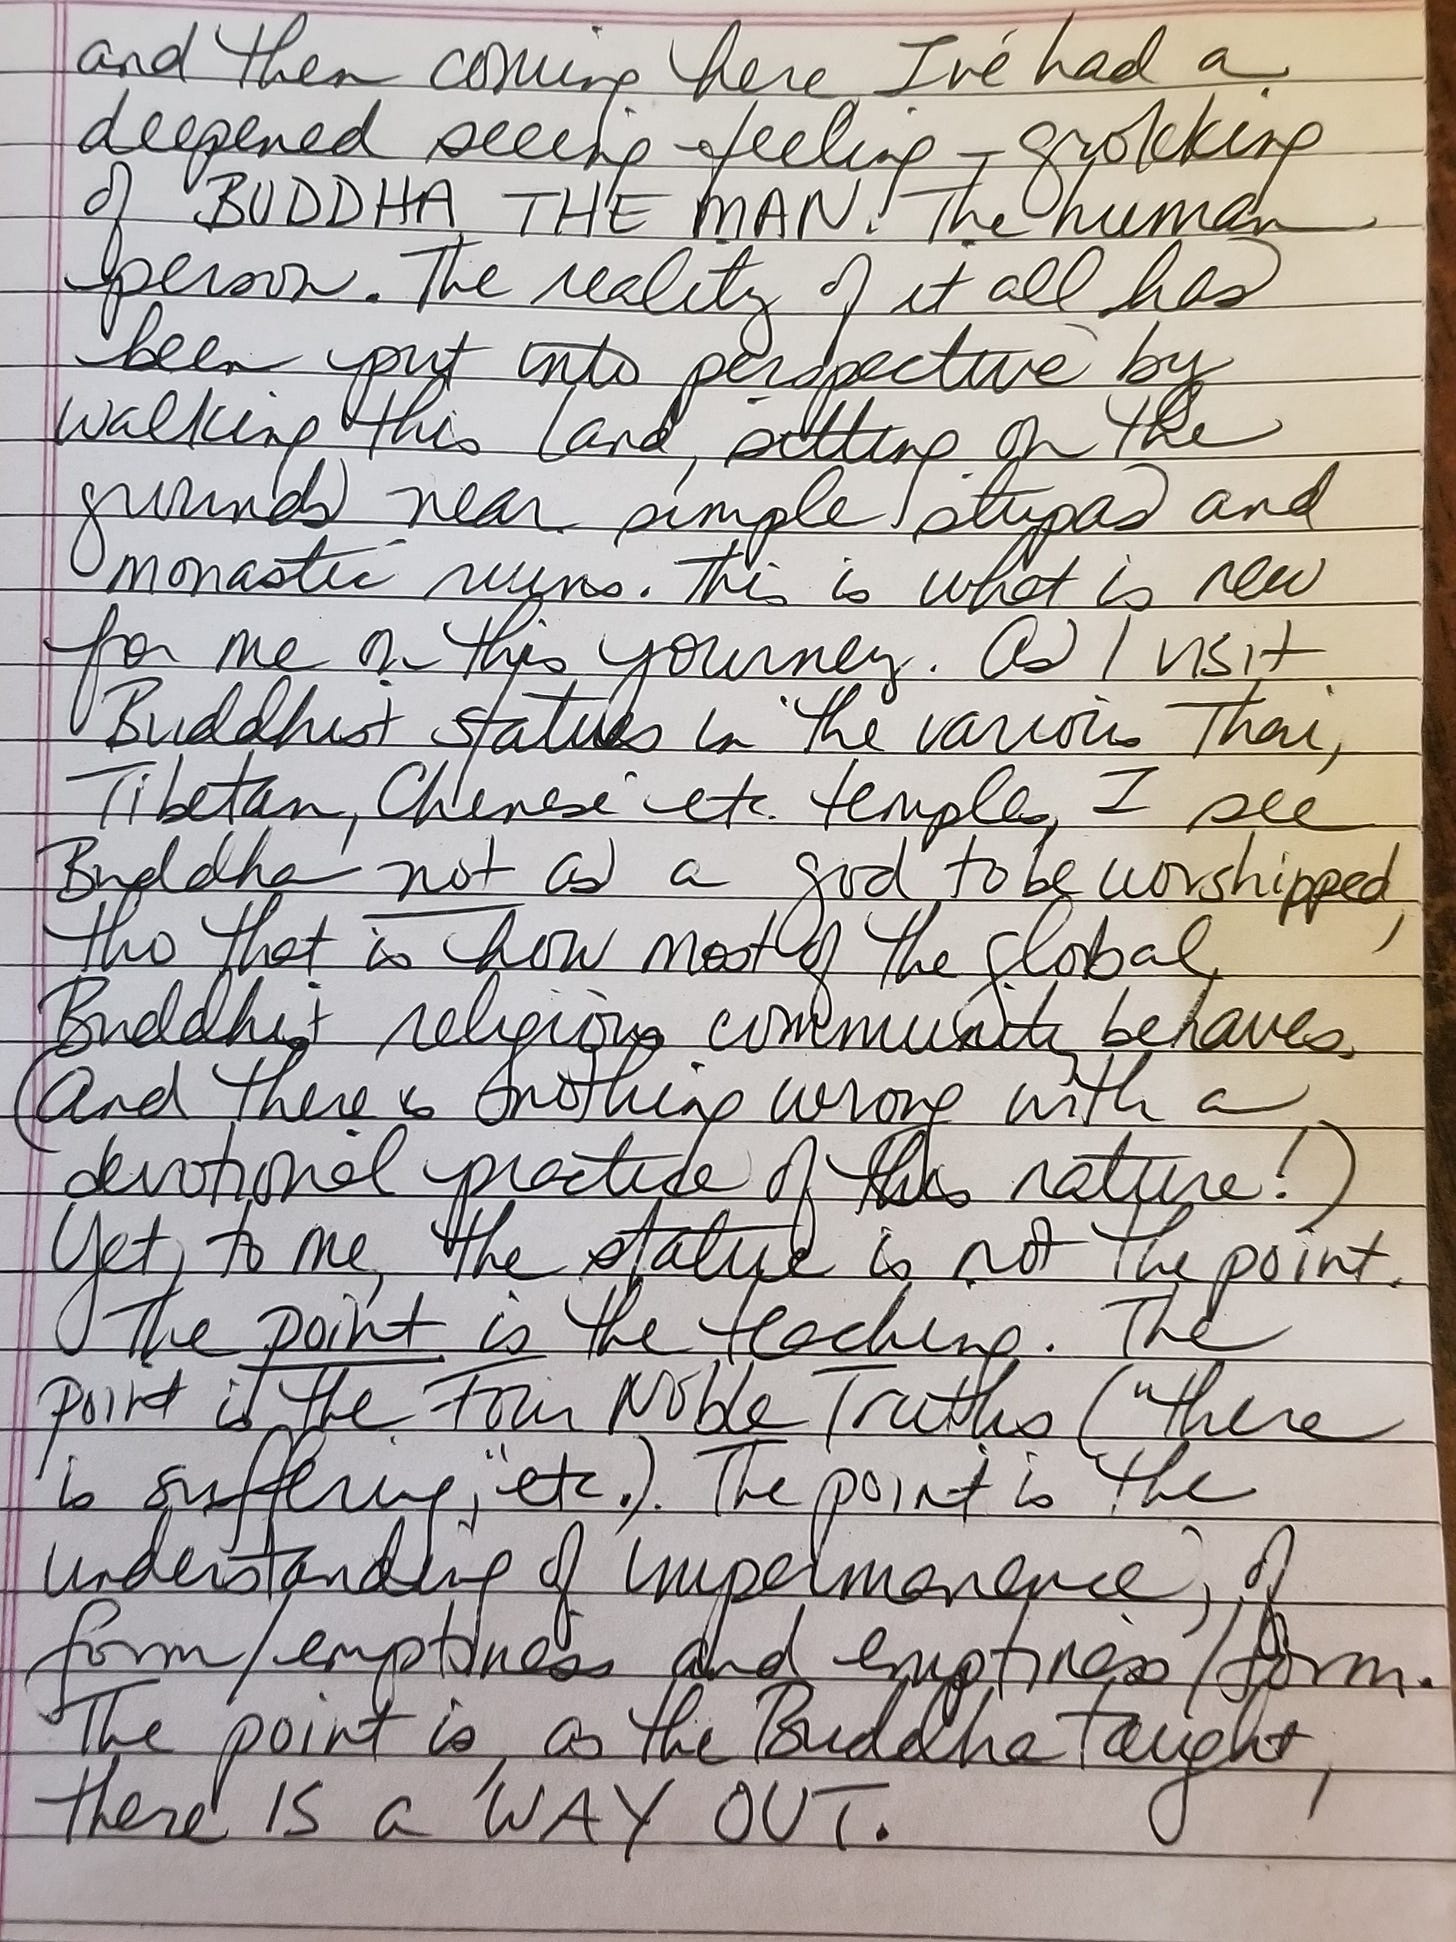 and then coming here I've had a
deepened seeing - feeling - grokking
of BUDDHA THE MAN! The human
person. The reality of it all has
been put into perspective by
walking this land, sitting on the
grounds near simple stupas and
monastic ruins. This is what is new
for me on this journey. As I visit
Buddhist statues in the various Thai,
Tibetan, Chinese etc. temples, I see
Buddha not as a god to be worshipped,
tho that is how most of the global
Buddhist religious community behaves.
(And there is nothing wrong with a
devotional practice of this nature!)
Yet, to me, the statue is not the point.
The point is the teaching. The
point is the Four Noble Truths ("there
is suffering," etc.). The point is the
understanding of impermanence, of
form/emptiness and emptiness/form.
The point is, as the Buddha taught,
there IS a WAY OUT.